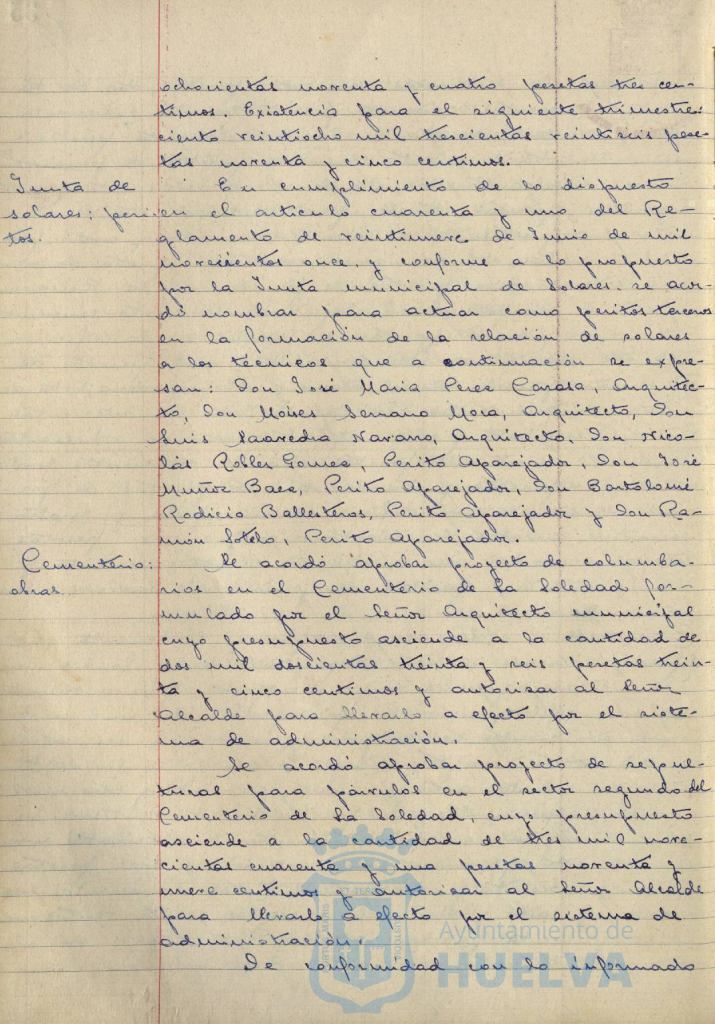 ochocientas noventa y cuatro pesetas tres cen-
timos. Existencia para el siguiente trimestre:
ciento veintiocho mil trescientas veintiseis pese-
tas noventa y cinco centimos.
Junta de
solares; peri-
tos.
En cumplimiento de lo dispuesto
en el articulo cuarenta y uno del Re-
glamento de veintinueve de Junio de mil
novecientos once, y conforme a lo propuesto
por la Junta municipal de Solares, se acor-
dó nombrar para actuar como peritos terceros
en la formación de la relación de solares
a los técnicos que a continuación se expre-
san: Don José Maria Perez Carasa, Arquitec-
to, Don Moises Serrano Mora, Arquitecto, Don
Luis Saavedra Navarro, Arquitecto, Don Nico-
lás Robles Gomez, Perito Aparejador, Don José
Muñoz Baez, Perito Aparejador, Don Bartolomé
Rodicio Ballesteros, Perito Aparejador y Don Ra-
món Sotelo, Perito Aparejador.
Cementerio:
obras.
Se acordó aprobar proyecto de columba-
rios en el Cementerio de La Soledad for-
mulado por el Señor Arquitecto municipal
cuyo presupuesto asciende a la cantidad de
dos mil doscientas treinta y seis pesetas trein-
ta y cinco centimos y autorizar al Señor
Alcalde para llevarlo a efecto por el siste-
ma de administración.
Se acordó aprobar proyecto de sepul-
turas para párvulos en el sector segundo del
Cementerio de La Soledad, cuyo presupuesto
asciende a la cantidad de tres mil nove-
cientas cuarenta y una pesetas noventa y
nueve centimos y autorizar al Señor Alcalde
para llevarlo a efecto por el sistema de
administración.
De conformidad con lo informado
Ayuntamiento de
HUELVA